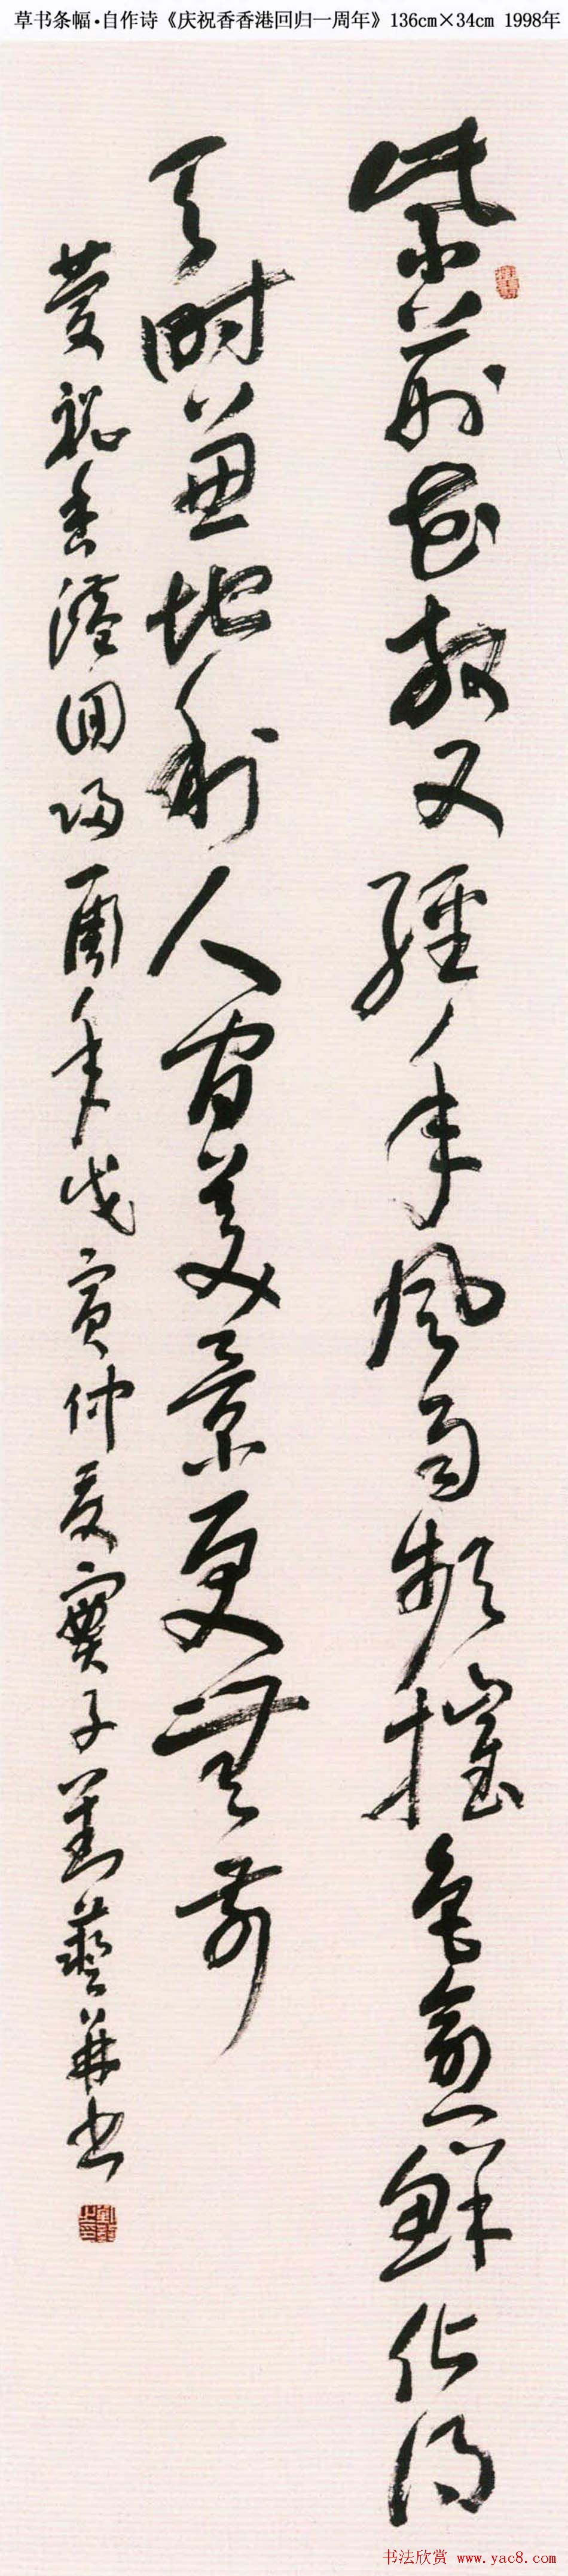 草书条幅·自作诗《庆祝香香港回归一周年》136cm×34cm 1998年
紫荆花放又经年风雨频摇色愈鲜占得
天时兼地利人间美景更无前
庆祝香港回归一周年戊寅仲夏宝子刘艺并书
书法欣赏 www.yac8.com